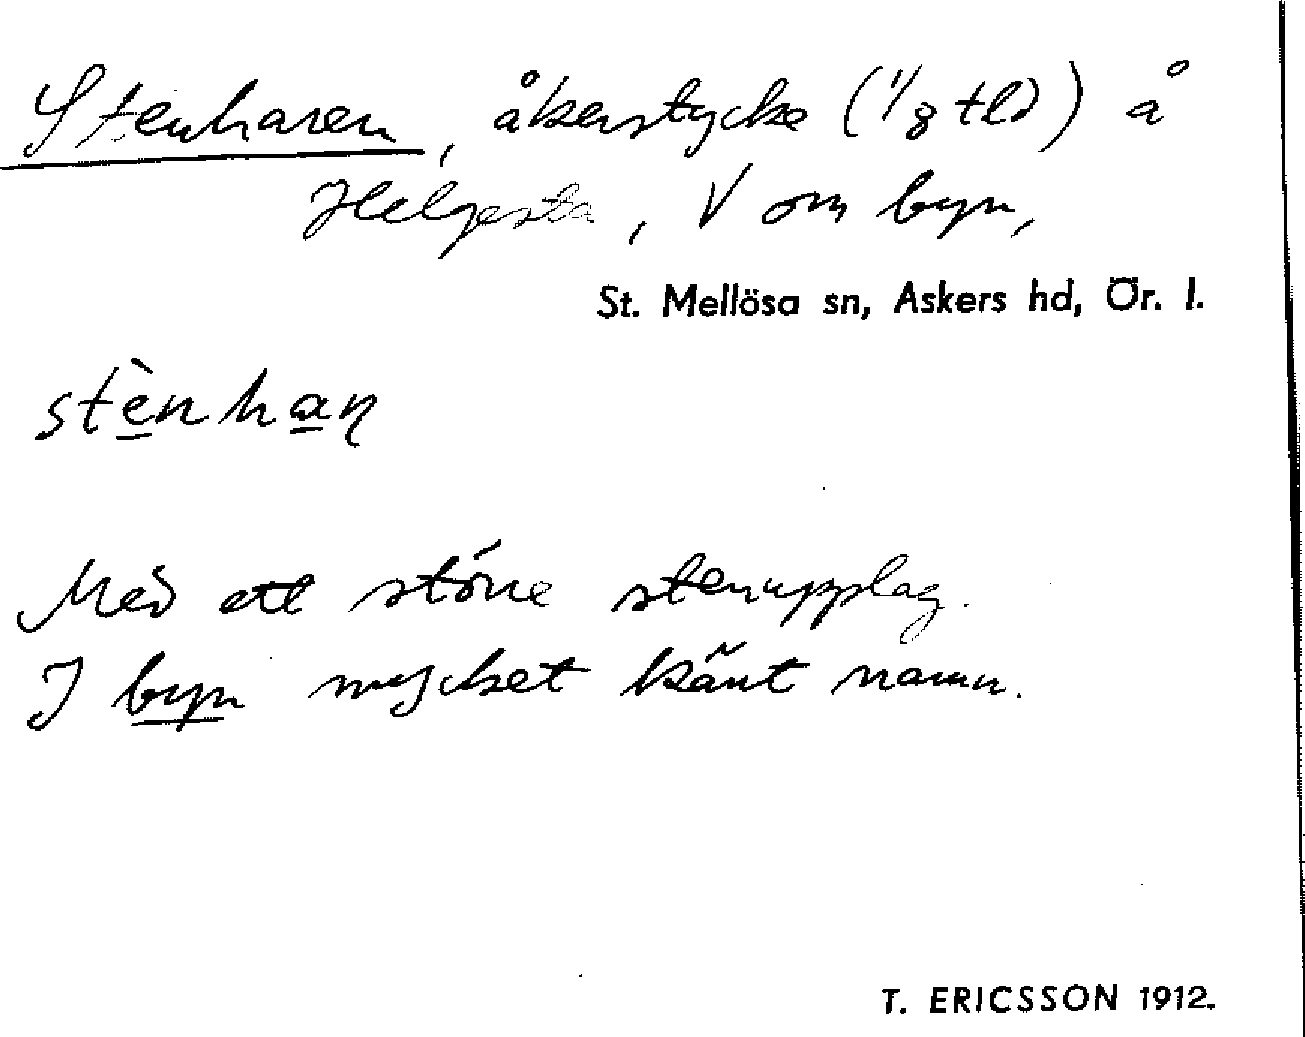 Stenharen, åkerstycke (1/8 tld) å
Helgesta, V om byn,
St. Mellösa sn, Askers hd, Ör. l.
stènhaṇ
Med ett större stenupplag.
I byn mycket känt namn.
T. ERICSSON 1912.